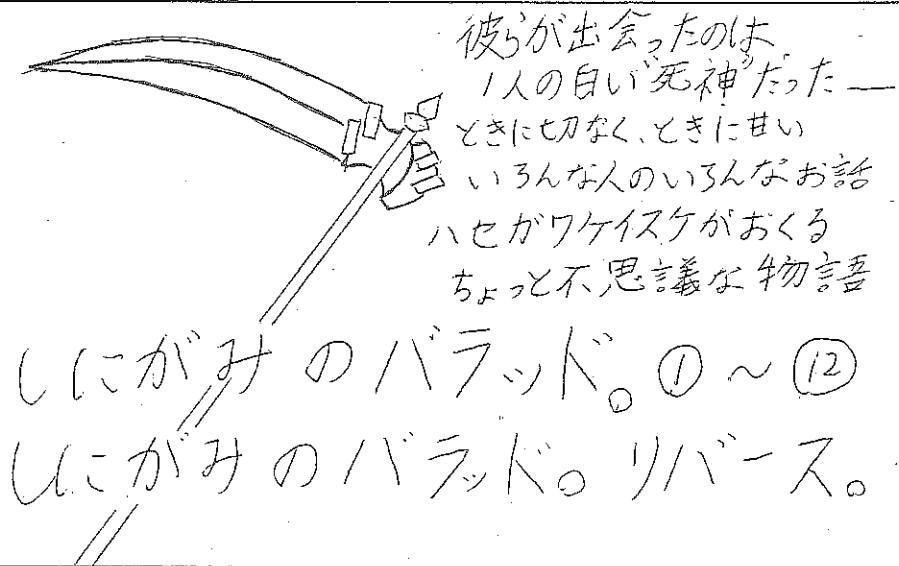 彼らが出会ったのは、
1人の白い“死神”だった——
ときに切なく、ときに甘い
いろんな人のいろんなお話
ハセガワケイスケがおくる
ちょっと不思議な物語
しにがみのバラッド。①～⑫
しにがみのバラッド。リバース。